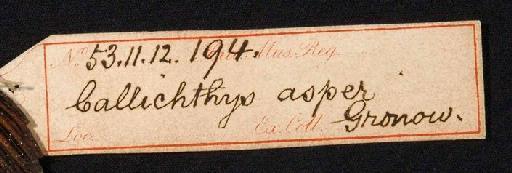 No. 53.11.12.194. Mus. Reg.
Callichthys asper
Loc. Ex. Coll. Gronow.